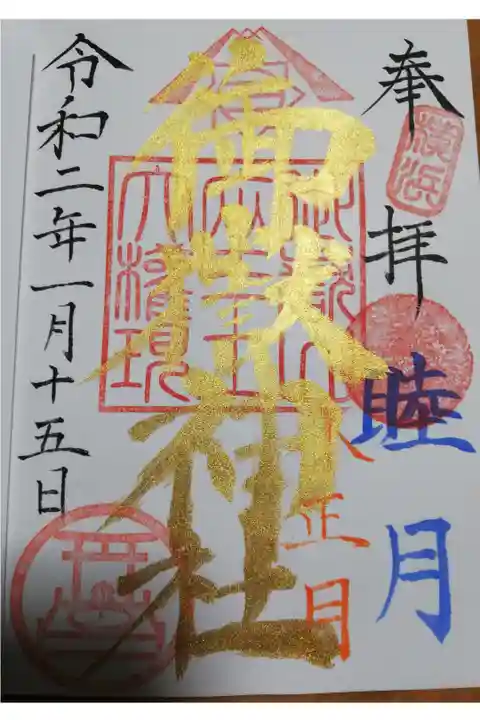 奉拝
横浜
睦月
正月
御嶽神社
大権現
令和二年一月十五日